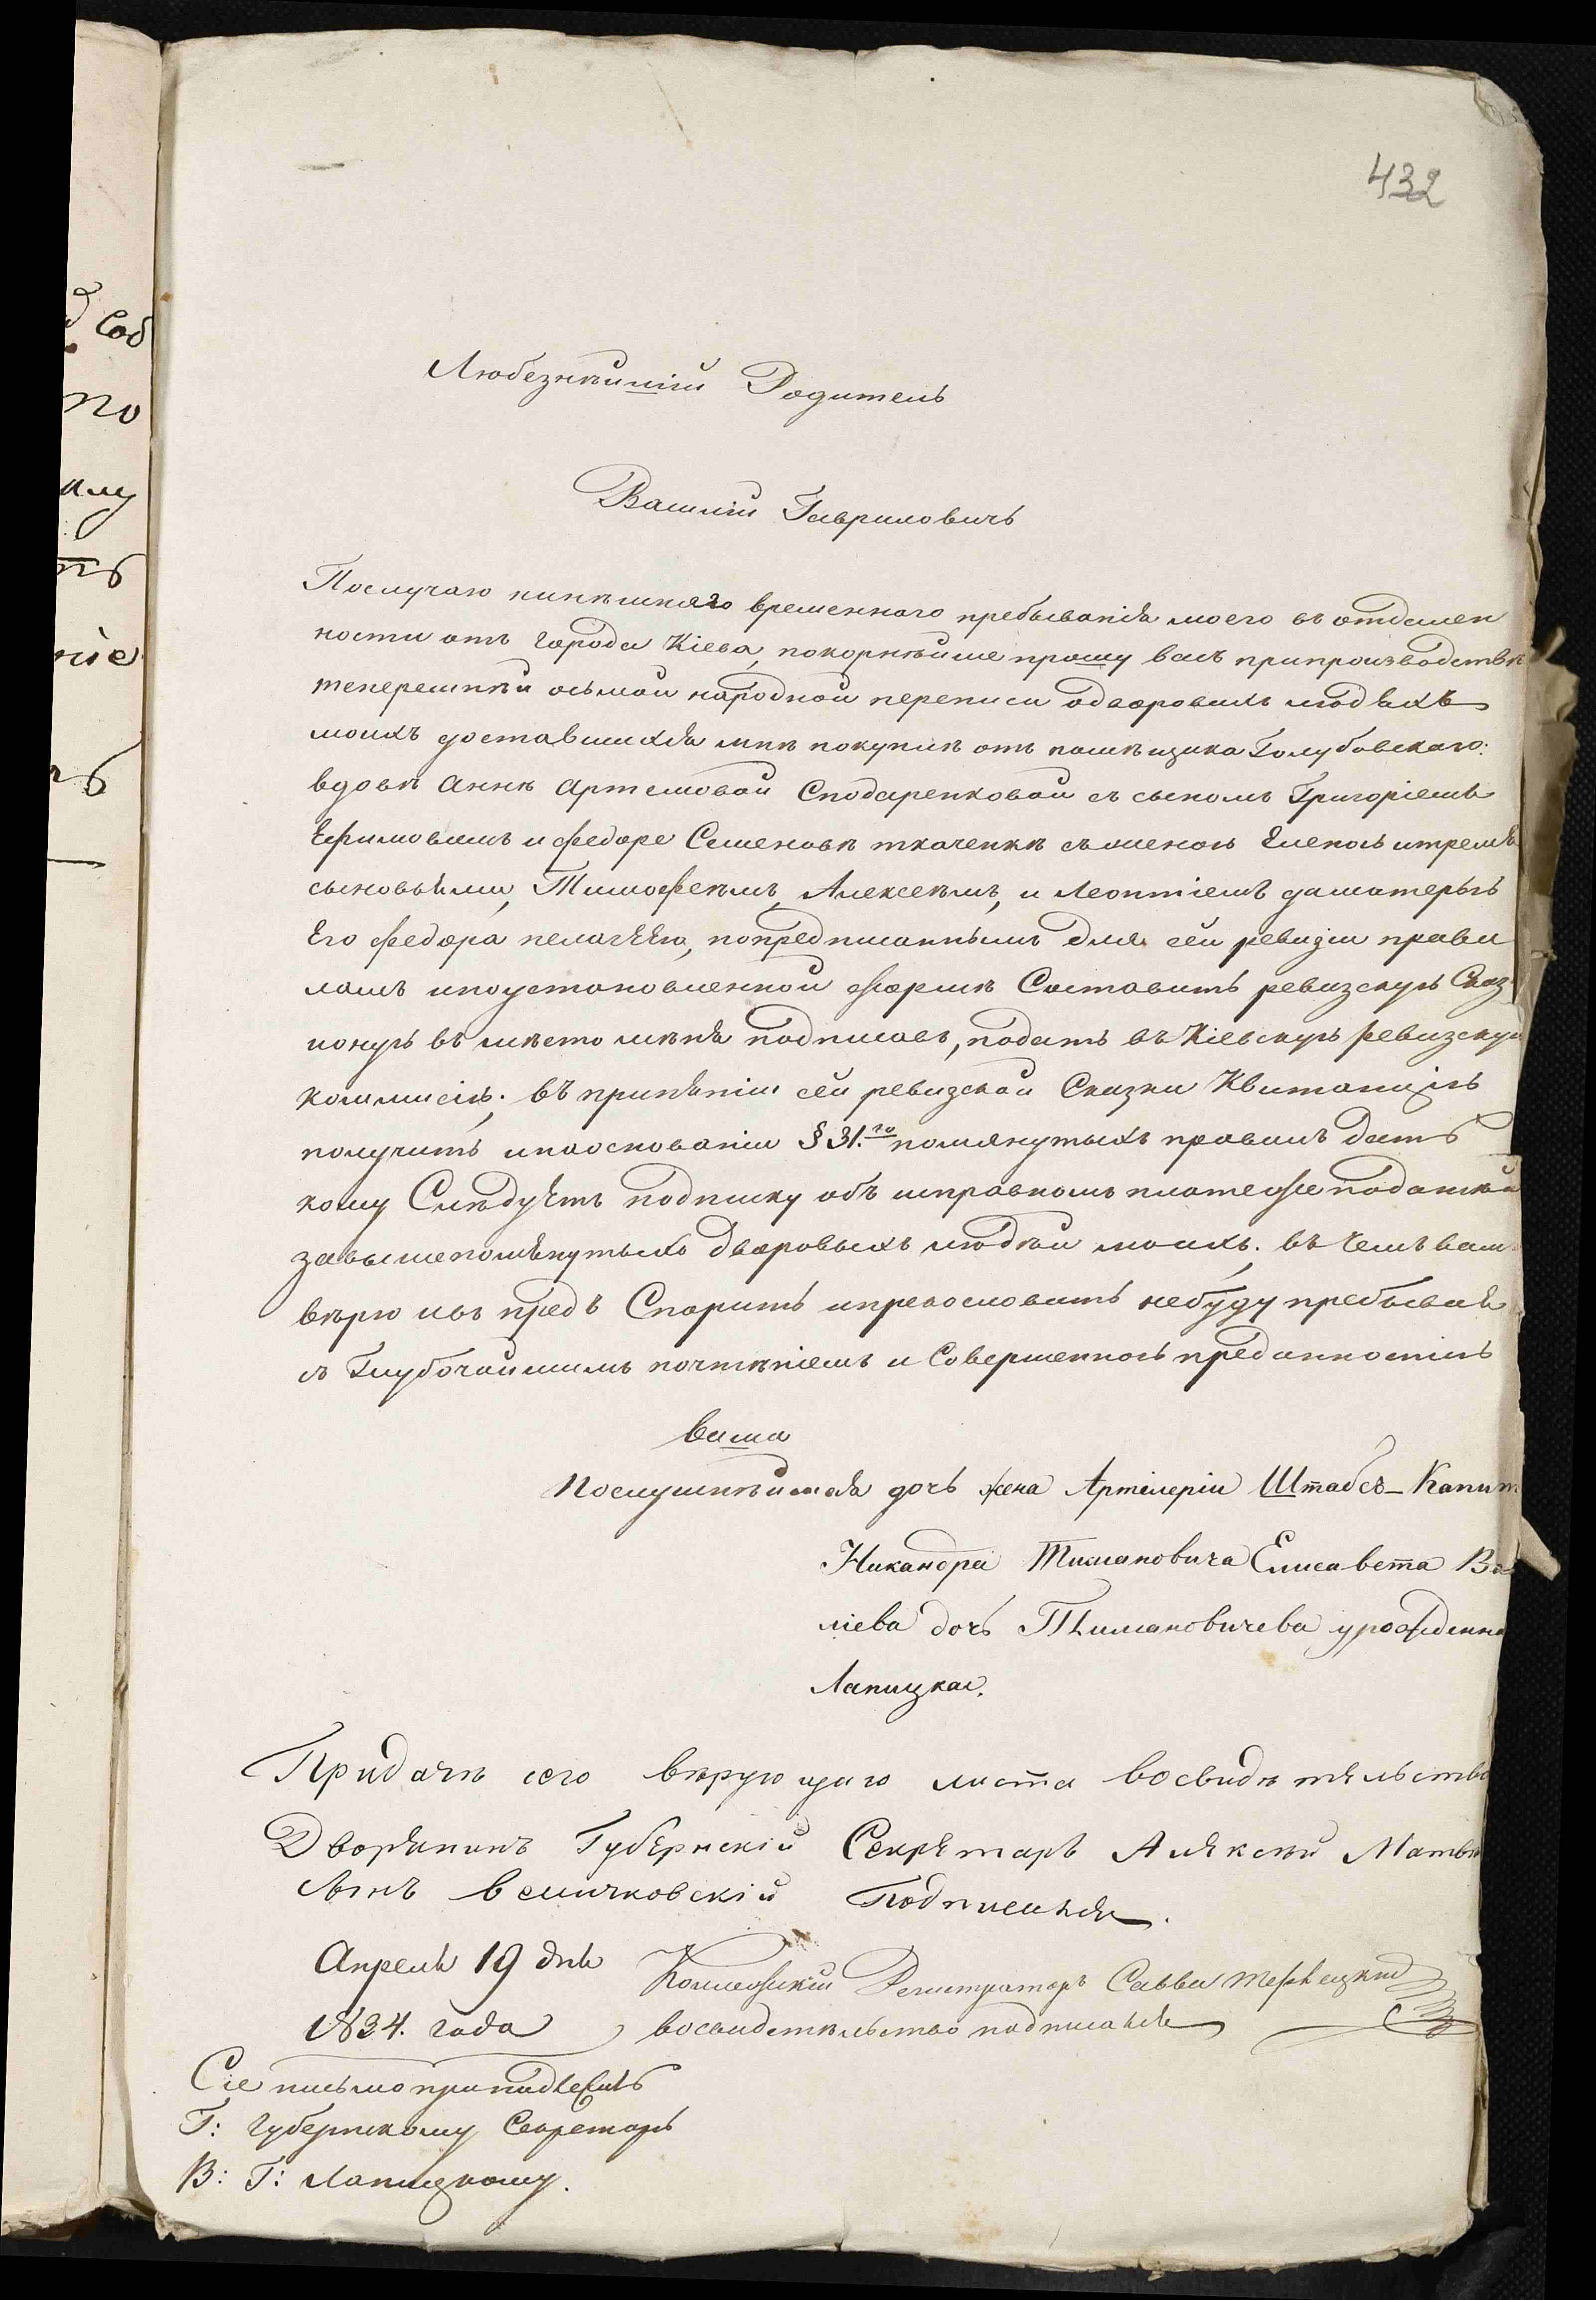 432
Любезнѣйшій Родитель
Василій Гавриловичъ
Послучаю нинѣшняго временнаго пребыванія моего въ отдален
ности отъ города Кіева, покорнѣйше прошу васъ припроизводствѣ
теперешнѣй осьмой народной переписи одворовыхъ людяхъ
моихъ доставшихся мнѣ покупкѣ отъ помѣщика Голубовскаго:
вдовѣ Аннѣ Артемовой Сподаренковой съ сыномъ Григоріемъ
Ефимовымъ и Федоре Семеновѣ ткаченкѣ съ женою Еленою итремя
сыновьями, Тимофеѣмъ, Алексеѣмъ, и Леонтіемъ даматерью
Его Федора пелагѣею, попредписаннымъ для сей ревизіи прави
ламъ ипоустановленной формѣ Составить ревизскую Сказ
ионую въ мѣсто мѣня подписавъ, подать въ Кіевскую ревизскую
коммисію; въ принятіи сей ревизской Сказки Квитанцію
получить инаоснованіи § 31.го помянутыхъ правилъ дать
кому Слѣдуетъ подписку объ исправномъ платеже податѣй
завышепомянутыхъ дворовыхъ людѣй моихъ. въ чемъ вам
вѣрю ивъ предъ Спорить ипрекословить небуду пребывая
съ Глубочайшимъ почтѣніемъ и Совершенною преданностію
ваша
Послушнѣйшая дочь жена Артилеріи Штабсъ-Капит
Никандра Тимановича Елисавета Ва
ліева дочь Тимановичева урожденна
Лапицкая.
Придачѣ сего вѣрующаго листа восвидѣтельство
Дворянинъ Губернскій Секретарь Алексѣй Матвѣ
сынъ величковскій Подписался.
Апреля 19 дня
1834. года
Коллежскій Регистраторъ Савва
восвидетѣльство подписался
Сіе письмо принадлежитъ
Г: губернскому Секретарю
В: Г: Лапицкому.